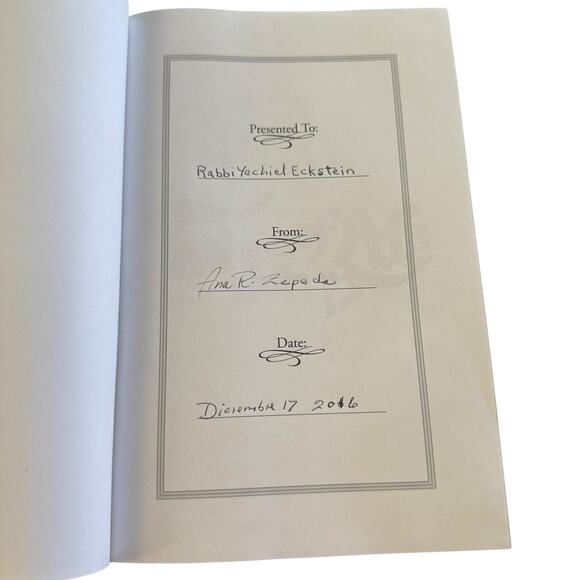 Presented To:
Rabbi Yechiel Eckstein
From:
Ana R. Zepeda
Date:
Diciembre 17 2016